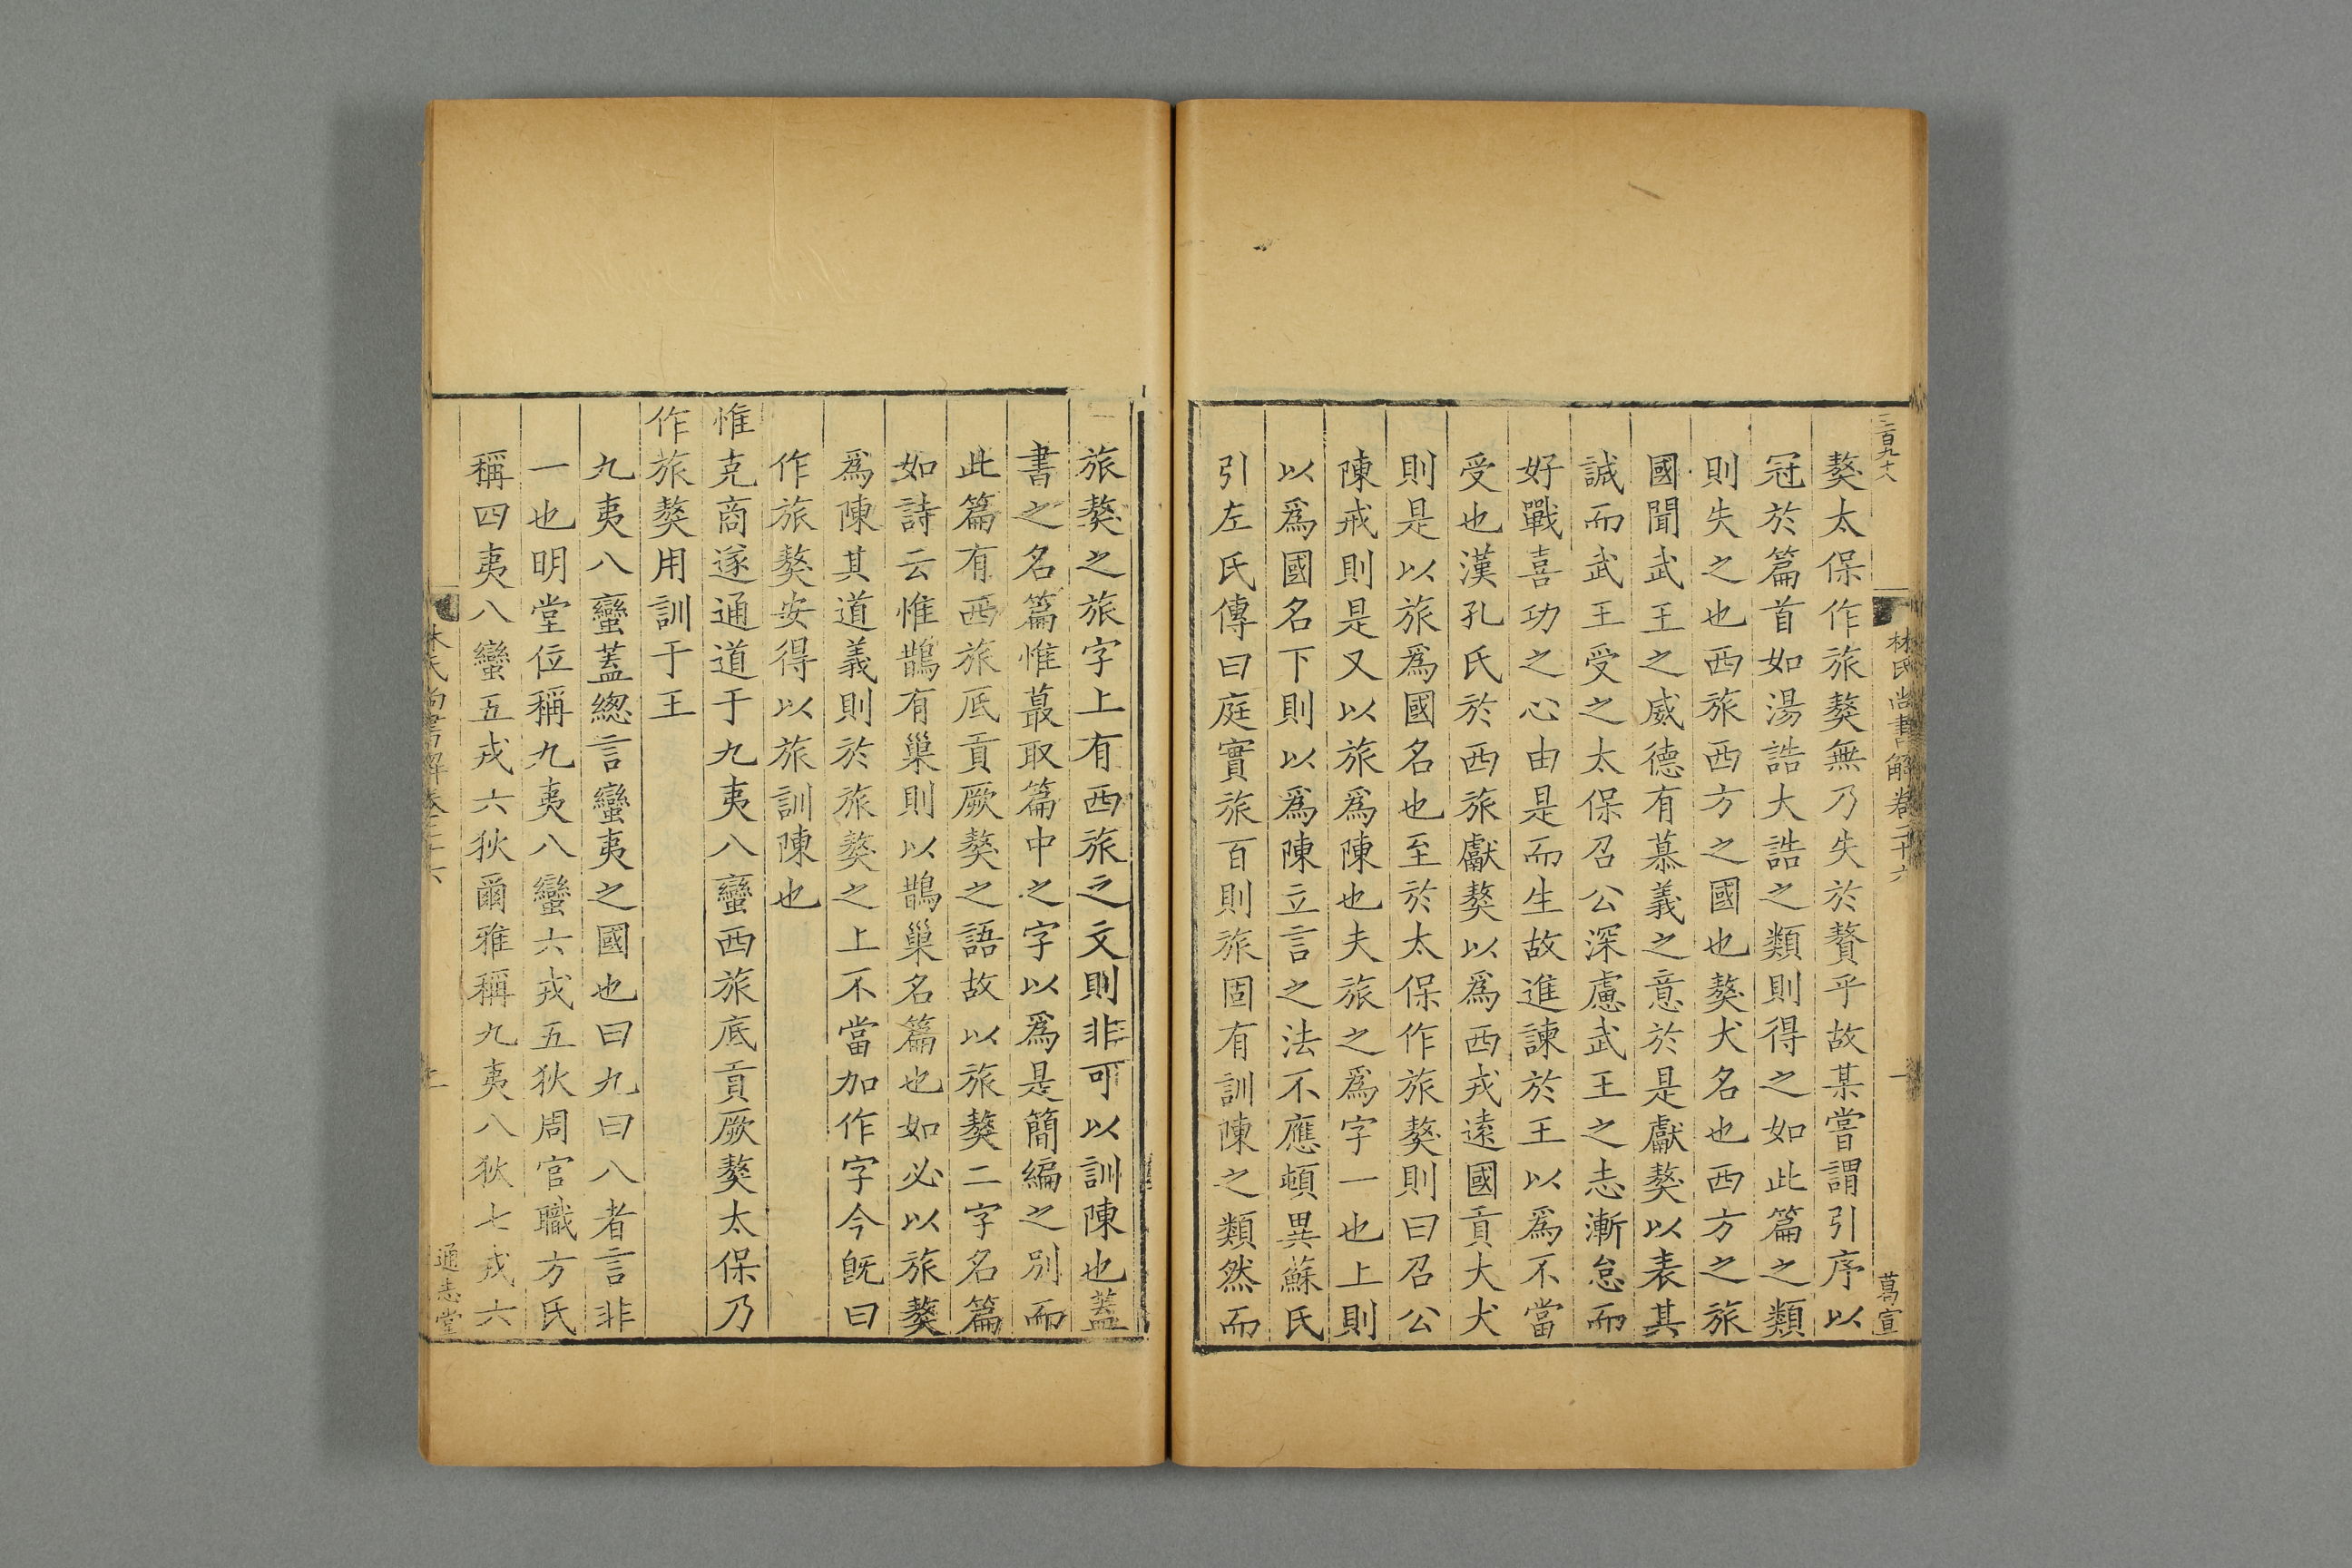 三百九十八
林氏尚書解卷二十六
一
葛宣
獒太保作旅獒無乃失於贅乎故某嘗謂引序以
冠於篇首如湯誥大誥之類則得之如此篇之類
則失之也西旅西方之國也獒犬名也西方之旅
國聞武王之威德有慕義之意於是獻獒以表其
誠而武王受之太保召公深慮武王之志漸怠而
好戰喜功之心由是而生故進諫於王以為不當
受也漢孔氏於西旅獻獒以為西戎遠國貢大犬
則是以旅為國名也至於太保作旅獒則曰召公
陳戒則是又以旅為陳也夫旅之為字一也上則
以為國名下則以為陳立言之法不應頓異蘇氏
引左氏傳曰庭實旅百則旅固有訓陳之類然而
旅獒之旅字上有西旅之文則非可以訓陳也蓋
書之名篇惟蕞取篇中之字以為是簡編之別而
此篇有西旅厎貢厥獒之語故以旅獒二字名篇
如詩云惟鵲有巢則以鵲巢名篇也如必以旅獒
為陳其道義則於旅獒之上不當加作字今旣曰
作旅獒安得以旅訓陳也
惟克商遂通道于九夷八蠻西旅底貢厥獒太保乃
作旅獒用訓于王
九夷八蠻蓋緫言蠻夷之國也曰九曰八者言非
一也明堂位稱九夷八蠻六戎五狄周官職方氏
稱四夷八蠻五戎六狄爾雅稱九夷八狄七戎六
林氏尚書解卷二十六
通志堂